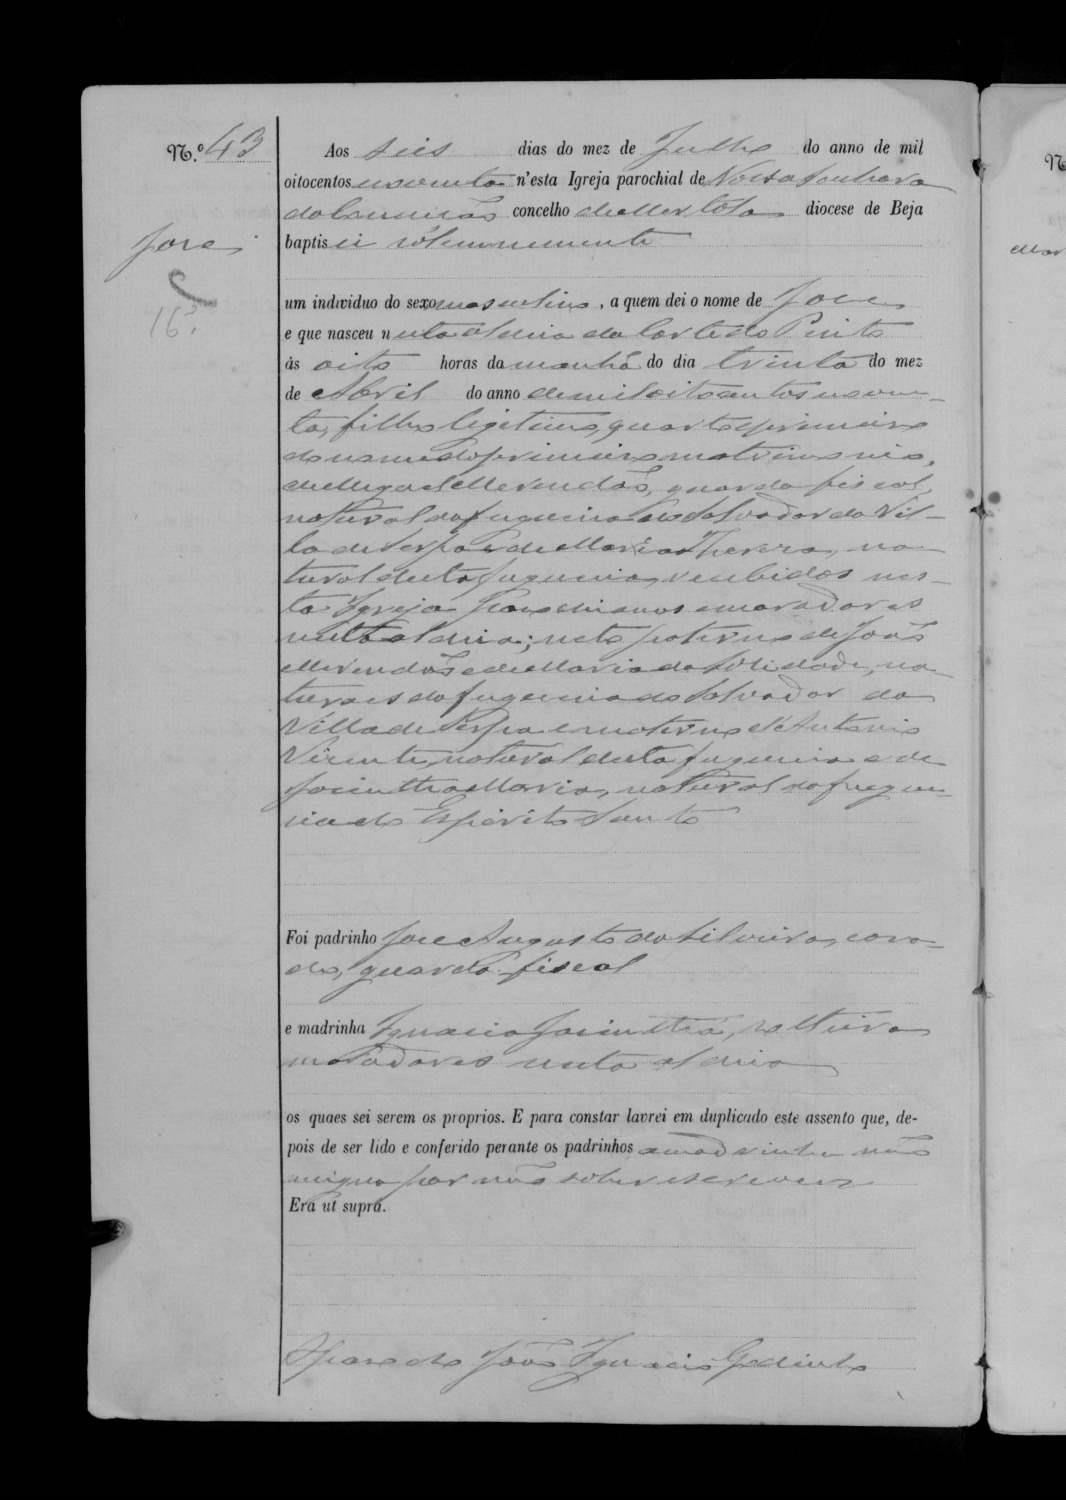 N.º 43
Aos seis dias do mez de Julho do anno de mil
oitocentos noventa n'esta Igreja parochial de Nossa Senhora
da Conceição concelho de Mertola diocese de Beja
José
baptisei solemnemente
um individuo do sexo masculino, a quem dei o nome de José
16
e que nasceu nesta aldeia da Corte do Pinto
ás oito horas da manhã do dia trinta do mez
de Abril do anno de mil oitocentos noven-
ta, filho legitimo, quarto e primeiro
do nome do primeiro matrimonio,
de Miguel Merendão, guarda fiscal,
natural da freguezia do Salvador da Vil-
la de Serpa e de Maria Thereza, na-
tural desta freguezia, recebidos nes-
ta Igreja parochianos e moradores
nesta aldeia; neto paterno de João
Merendão e de Maria da Solidade, na-
turaes da freguezia do Salvador da
Villa de Serpa e materno d'Antonio
Vicente, natural desta freguezia e de
Jacinttha Maria, natural da fregue-
zia do Espirito Santo
Foi padrinho José Augusto da Silveira, casa-
do, guarda fiscal
e madrinha Ignacia Jacinttha, solteira
moradores nesta aldeia
os quaes sei serem os proprios. E para constar lavrei em duplicado este assento que, de-
pois de ser lido e conferido perante os padrinhos a madrinha não
assigna por não saber escrever
Era ut supra.
O Parocho João Ignacio Godinho